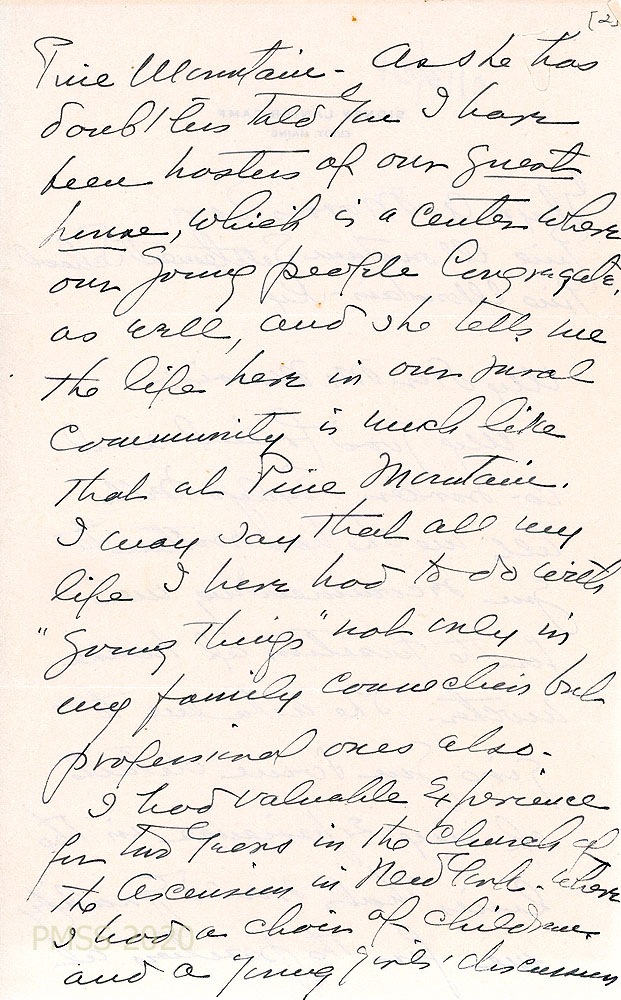 [2]
Pine Mountain - As she has
doubtless told you I have
been hostess of our guest
house, which is a center where
our young people congregate,
as well, and she tells me
the life here in our rural
community is much like
that at Pine Mountain.
I may say that all my
life I have had to do with
"young things" not only in
my family connection but
professional ones also.
I had valuable experience
for two years in the Church of
the Ascension in New York - where
I had a choir of children
and a young girls' discussion
PMSS 2020